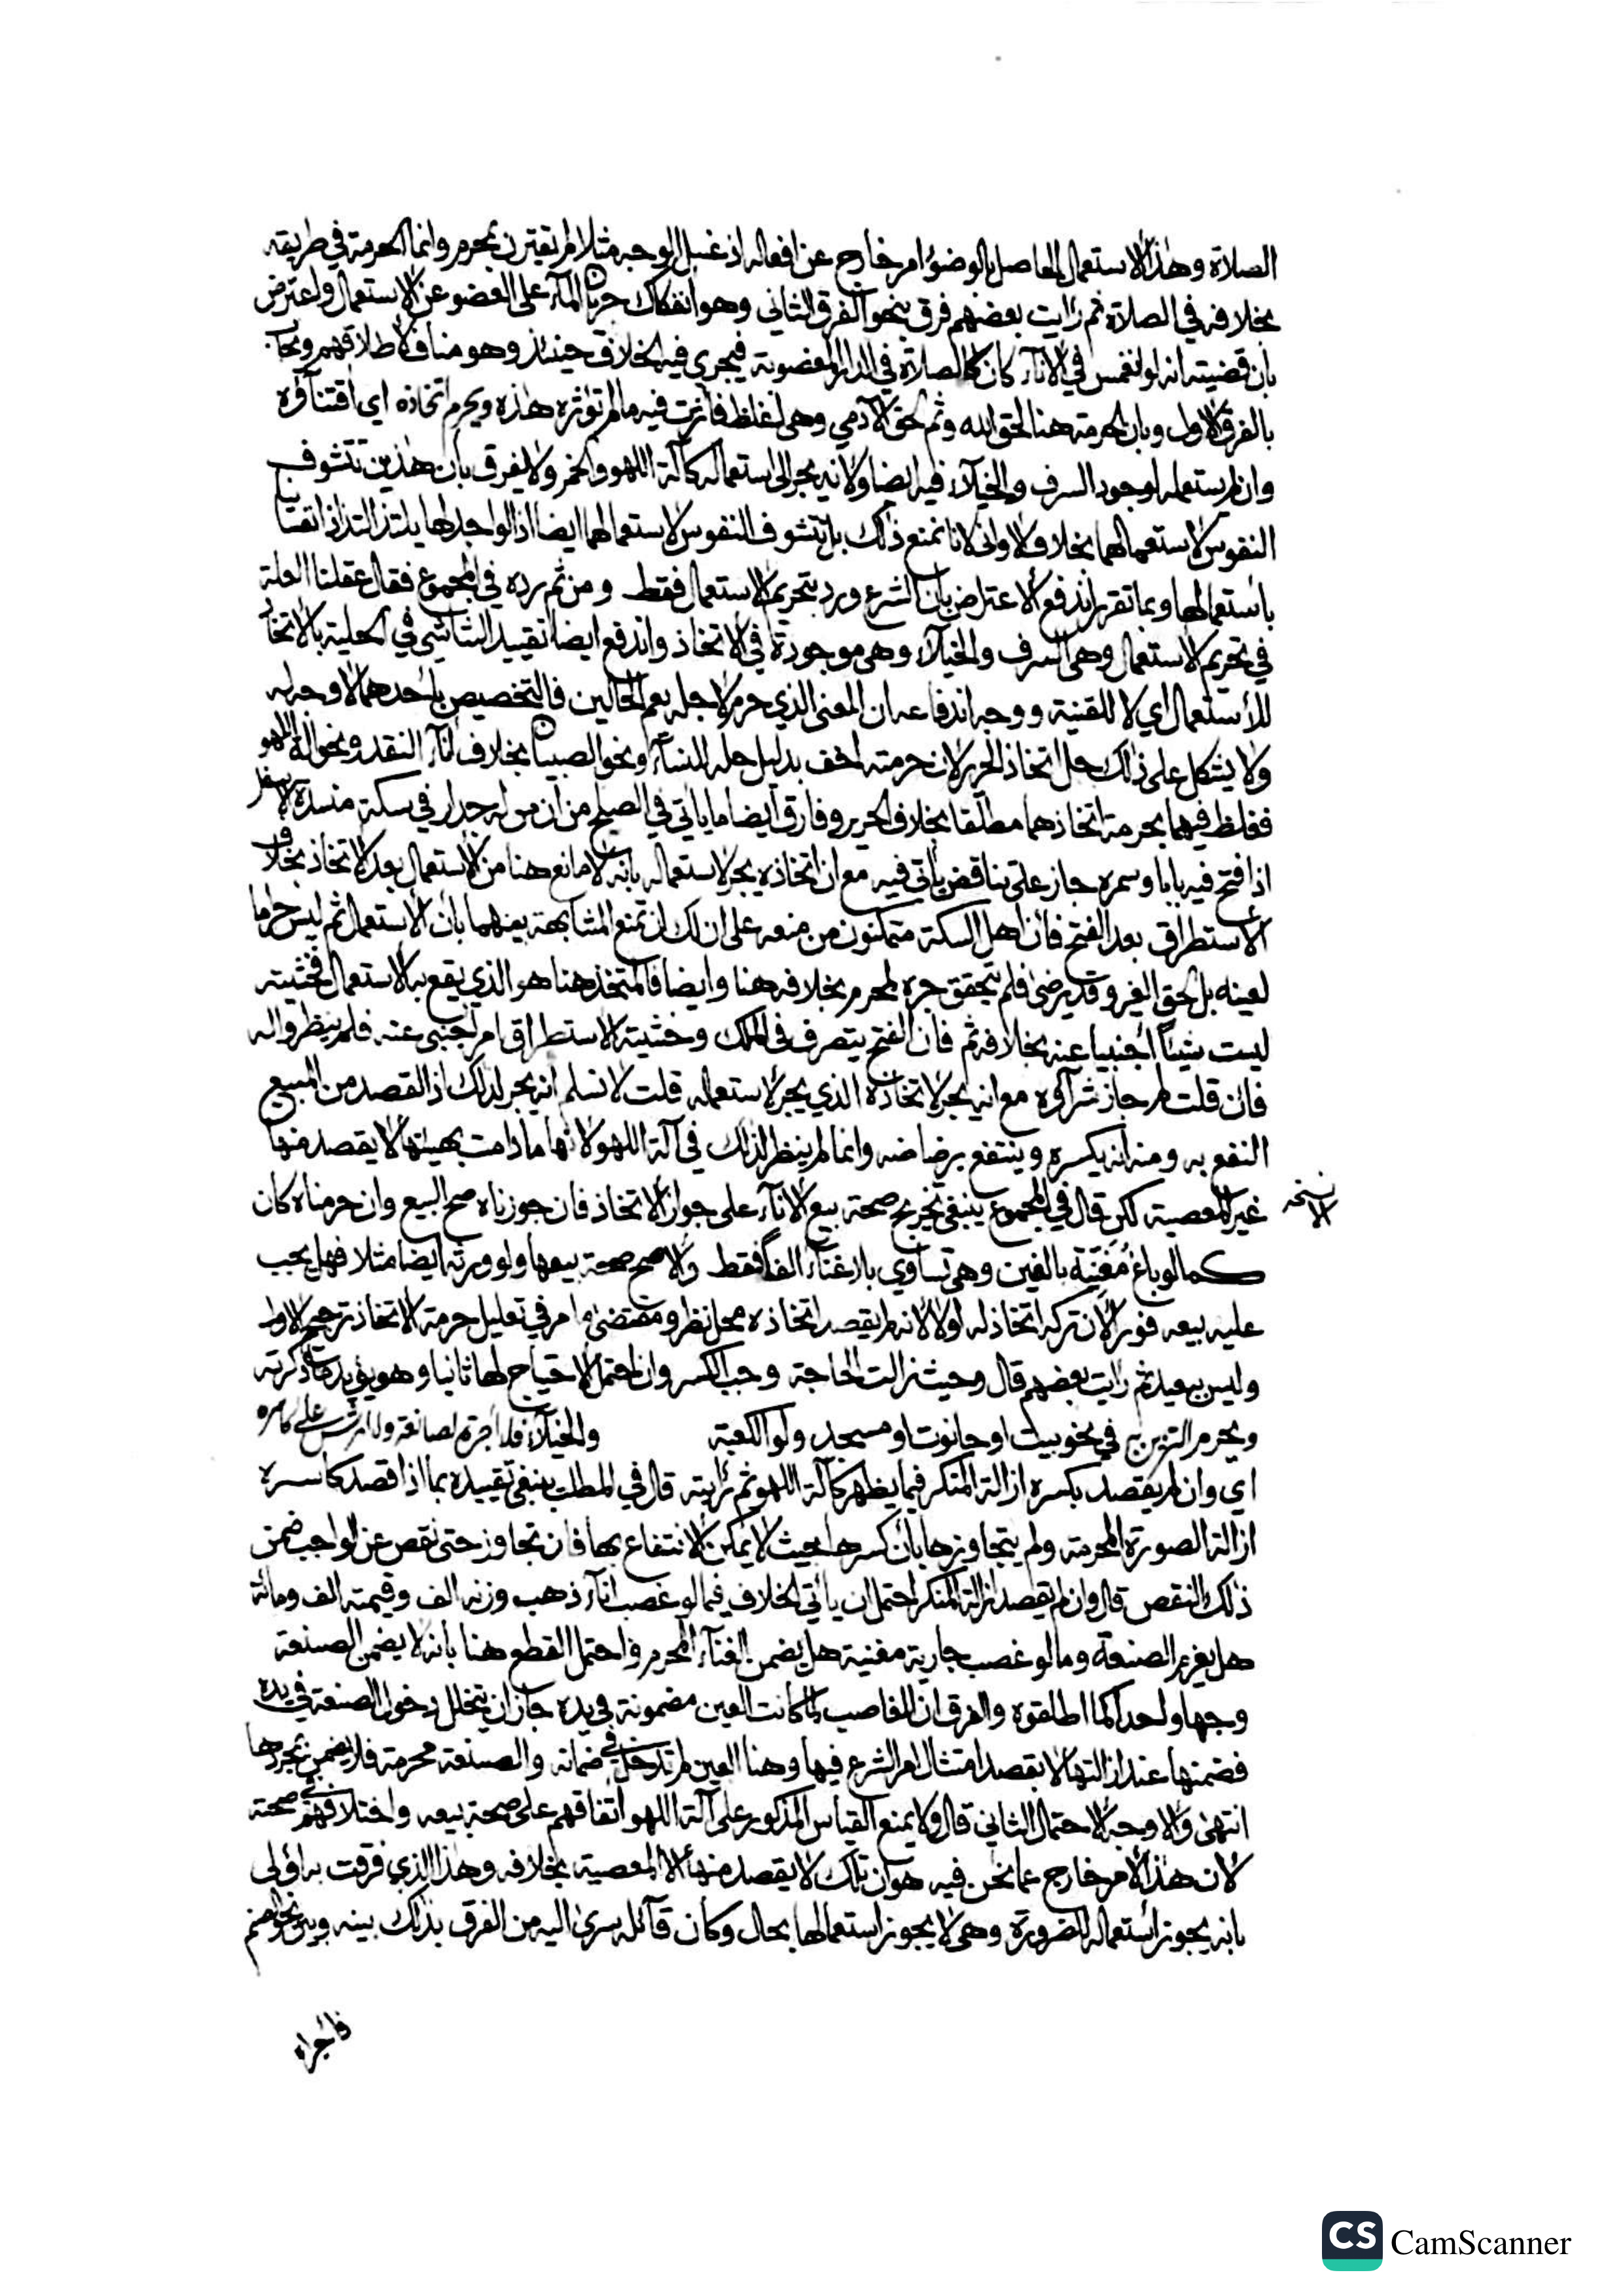 الصلاة وهذا الاستعمال الحاصل بالوضوء امر خارج عن افعاله اذ غسل الوجه مثلا لم يقترن بمحرم وانما الحرمة في طريقه
بخلافه في الصلاة ثم رايت بعضهم فرق بنحو الفرق الثاني وهو انفكاك جريان المآء على العضو عن الاستعمال واعترض
بأن قضيته انه لو انغمس في الانآء كان كالصلاة في الدار المغصوبة فيجري فيه الخلاف حينئذ وهو مناف لاطلاقهم ويجاب
بالفرق الاول وبان الحرمة هنا لحق الله وثم لحق الادمي وهي اغلظ فأثرت فيه ما لم تؤثره هذه ويحرم اتخاذه اي اقتنآؤه
وان لم يستعمله لوجود السرف والخيلآء فيه ايضا ولانه يجر الى استعماله كآلة اللهو والخمر ولا يفرق بأن هذين تتشوف
النفوس لاستعمالهما بخلاف الاولى لانا نمنع ذلك بل تتشوف النفوس لاستعمالها ايضا اذ الواجد لها يلتذ التذاذا تفتتا
بأستعمالها وبما تقرر اندفع الاعتراض بأن الشرع ورد بتحريم الاستعمال فقط ومن ثم رده في المجموع فقال عقلنا العلة
في تحريم الاستعمال وهي السرف والخيلآء وهي موجودة في الاتخاذ واندفع ايضا تقييد الشاشي في الحلية بالاتخاذ
للأستعمال اي لا للقنية ووجه اندفاعه ان المعنى الذي حرم لاجله يعم الحالين فالتخصيص بأحدهما لا وجه له
ولا يشكل على ذلك حل اتخاذ الحرير لان حرمته اخف بدليل حله للنسآء ونحو الصبيان بخلاف انآء النقد ونحو الة اللهو
فغلظ فيهما بحرمة اتخاذهما مطلقا بخلاف الحرير وفارق ايضا ما يأتي في الصلح من أن من له جدار في سكة منسدة الاسفل
اذا فتح فيه بابا وسمره جاز على تناقض يأتي فيه مع ان اتخاذه يجر لاستعماله بانه لا مانع هنا من الاستعمال بعد الاتخاذ بخلاف
الأستطراق بعد الفتح فان اهل السكة متمكنون من منعه على ان لك ان تمنع المشابهة بينهما بأن الاستعمال ثم ليس حراما
لعينه بل لحق الغير وقد يرضى فلم يتحقق جره لمحرم بخلافه هنا وايضا فالمتخذ هنا هو الذي يقع به الاستعمال فخشيته
ليست شيئا أجنبيا عنه بخلافه ثم فان الفتح يتصرف في الملك وخشية الاستطراق امر اجنبي عنه فلم ينظروا له
فان قلت لم جاز شرآؤه مع انه يجر لاتخاذه الذي يجر لاستعماله قلت لا نسلم انه يجر لذلك اذ القصد من المبيع
النفع به ومنه انه يكسره وينتفع برضاضه وانما لم ينظر لذلك في آلة اللهو لانها ما دامت بهيئتها لا يقصد منها
غير المعصية لكن قال في المجموع ينبغي تخريج صحة بيع الانآء على جواز الاتخاذ فان جوزناه صح البيع وان حرمناه كان
كما لو باع مُغَنِّيَة بالفين وهي تساوي بلا غنآء الفا فقط والاصح صحة بيعها ولو ورثه ايضا مثلا فهل يجب
عليه بيعه فورا لأن تركه اتخاذ له اولا لانه لم يقصد اتخاذه محل نظر ومقتضى ما مر في تعليل حرمة الاتخاذ ترجيح الاول
وليس ببعيد ثم رايت بعضهم قال وحيث زالت الحاجة وجب الكسر وان احتمل الاحتياج لها ثانيا وهو يؤيد ما ذكرته
ويحرم التزيين به في نحو بيت او حانوت او مسجد ولو الكعبة والخيلآء فلا أجرة لصانعه ولا ارش على كاسره
اي وان لم يقصد بكسره ازالة المنكر فيما يظهر كآلة اللهو ثم رايته قال في المطلب ينبغي تقييده بما اذا قصد كاسره
ازالة الصورة المحرمة ولم يتجاوزها بأن كسرها بحيث لا يمكن الانتفاع بها فان تجاوز حتى نقص عن الواجب ضمن
ذلك النقص قال وان لم يقصد ازالة المنكر احتمل ان يأتي الخلاف فيما لو غصب انآء ذهب وزنه الف وقيمته الف ومائة
هل يغرم الصنعة وما لو غصب جارية مغنية هل يضمن الغنآء المحرم واحتمل القطع هنا بأنه لا يضمن الصنعة
وجها واحدا كما اطلقوه والفرق ان الغاصب لما كانت العين مضمونة في يده جاز ان يتخلل دخول الصنعة في يده
فضمنها عند ازالتها لا بقصد امتثال امر الشرع فيها وهنا العين لم تدخل في ضمانه والصنعة محرمة فلا يضمن بمجردها
انتهى والاوجه الاحتمال الثاني قال ولا يمنع القياس المذكور على آلة اللهو اتفاقهم على صحة بيعه واختلافهم في صحته
لان هذا الامر خارج عما نحن فيه هو ان تلك لا يقصد منها الا المعصية بخلافه وهذا الذي فرقت به اولى
بانه يجوز استعماله للضرورة وهي لا يجوز استعمالها بحال وكأن قآئله سرى اليه من الفرق بذلك بينه وبين نحو الصنم